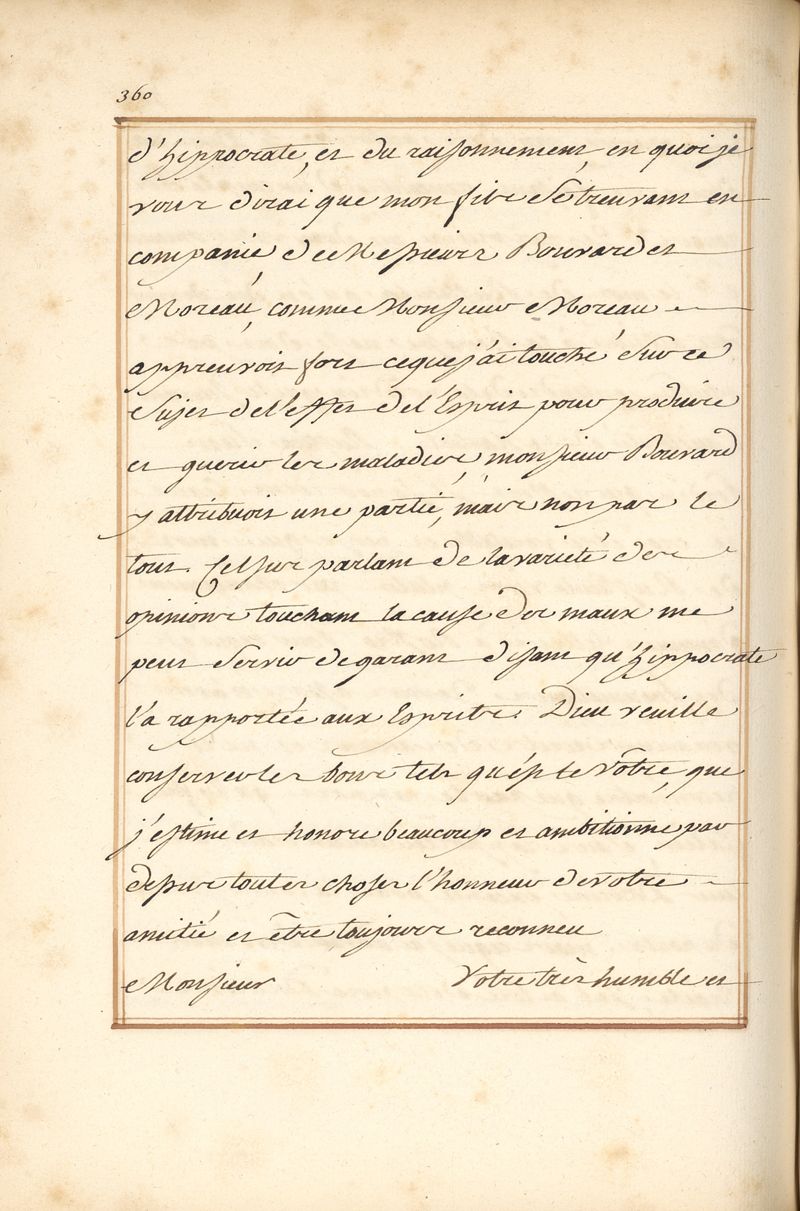 360
d'hippocrate, et du raisonnement, en quoi je
vous dirai que mon fils Se treuvant en
companie de Messieurs Bouvard et
Moreau, comme Monsieur Moreau
appreuvoit fort ce que j'ai touché Sur ce
Sujet de l'effet de l'Esprit pour produire
et guerir les maladies, monsieur Bouvard
y attribuoit une partie, mais non pas le
tout. Celsus parlant de la varieté des
opinions touchant la cause des maux me
peut Servir de garant disant qu'hippocrate
l'a rapportée aux Esprits. Dieu veuille
conserver les bons tels qu'est le vôtre, que
j'estime et honore beaucoup et ambitionne par
dessus toutes choses l'honneur de votre
amitié et être toujours reconneu
Monsieur Votre très humble et